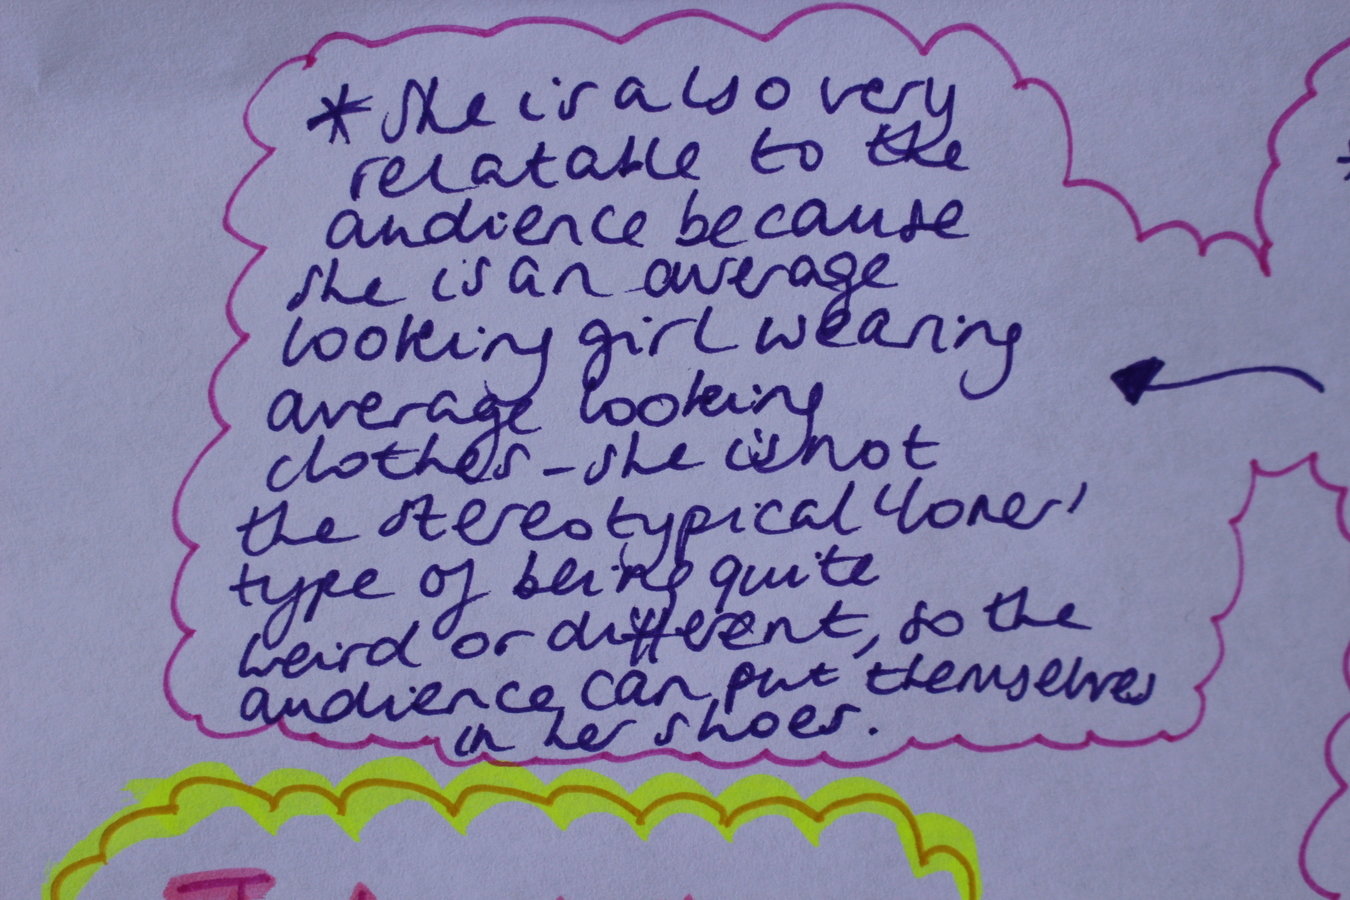 * she is also very
relatable to the
audience because
she is an average
looking girl wearing
average looking
clothes - she is not
the stereotypical 'loner'
type of being quite
weird or different, so the
audience can put themselves
in her shoes.